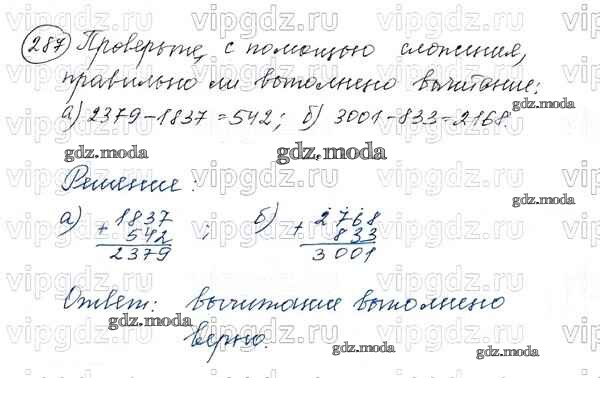 287 Проверьте, с помощью сложения,
правильно ли выполнено вычитание:
а) 2379-1837=542; б) 3001-833=2168.
gdz.moda gdz.moda gdz.moda
Решение:
а) 1837 ; б) 2768
+ 542 + 833
2379 3001
gdz.moda
Ответ: вычитание выполнено
верно.
gdz.moda gdz.moda gdz.moda
vipgdz.ru vipgdz.ru vipgdz.ru